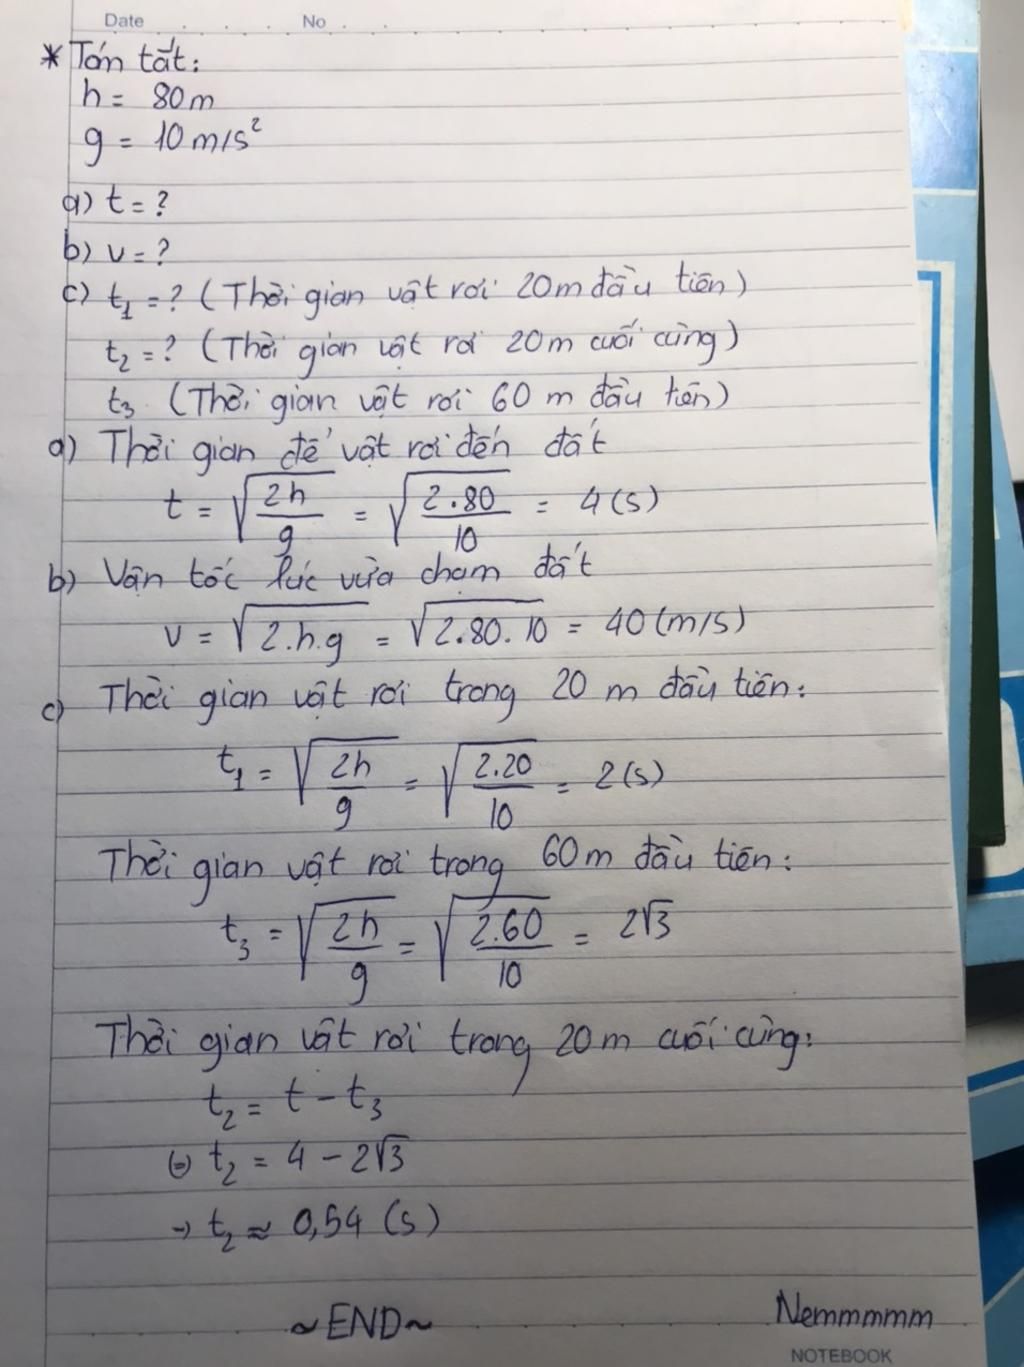 Date No
* Tóm tắt:
h = 80 m
g = 10 m/s²
a) t = ?
b) v = ?
c) t₁ = ? (Thời gian vật rơi 20m đầu tiên)
t₂ = ? (Thời gian vật rơi 20m cuối cùng)
t₃ (Thời gian vật rơi 60 m đầu tiên)
a) Thời gian để vật rơi đến đất
t = √(2h/g) = √(2.80/10) = 4 (s)
b) Vận tốc lúc vừa chạm đất
v = √(2.h.g) = √(2.80.10) = 40 (m/s)
c) Thời gian vật rơi trong 20 m đầu tiên:
t₁ = √(2h/g) = √(2.20/10) = 2 (s)
Thời gian vật rơi trong 60m đầu tiên:
t₃ = √(2h/g) = √(2.60/10) = 2√3
Thời gian vật rơi trong 20 m cuối cùng:
t₂ = t - t₃
⇔ t₂ = 4 - 2√3
→ t₂ ≈ 0,54 (s)
~ END ~
Nemmmmm
NOTEBOOK